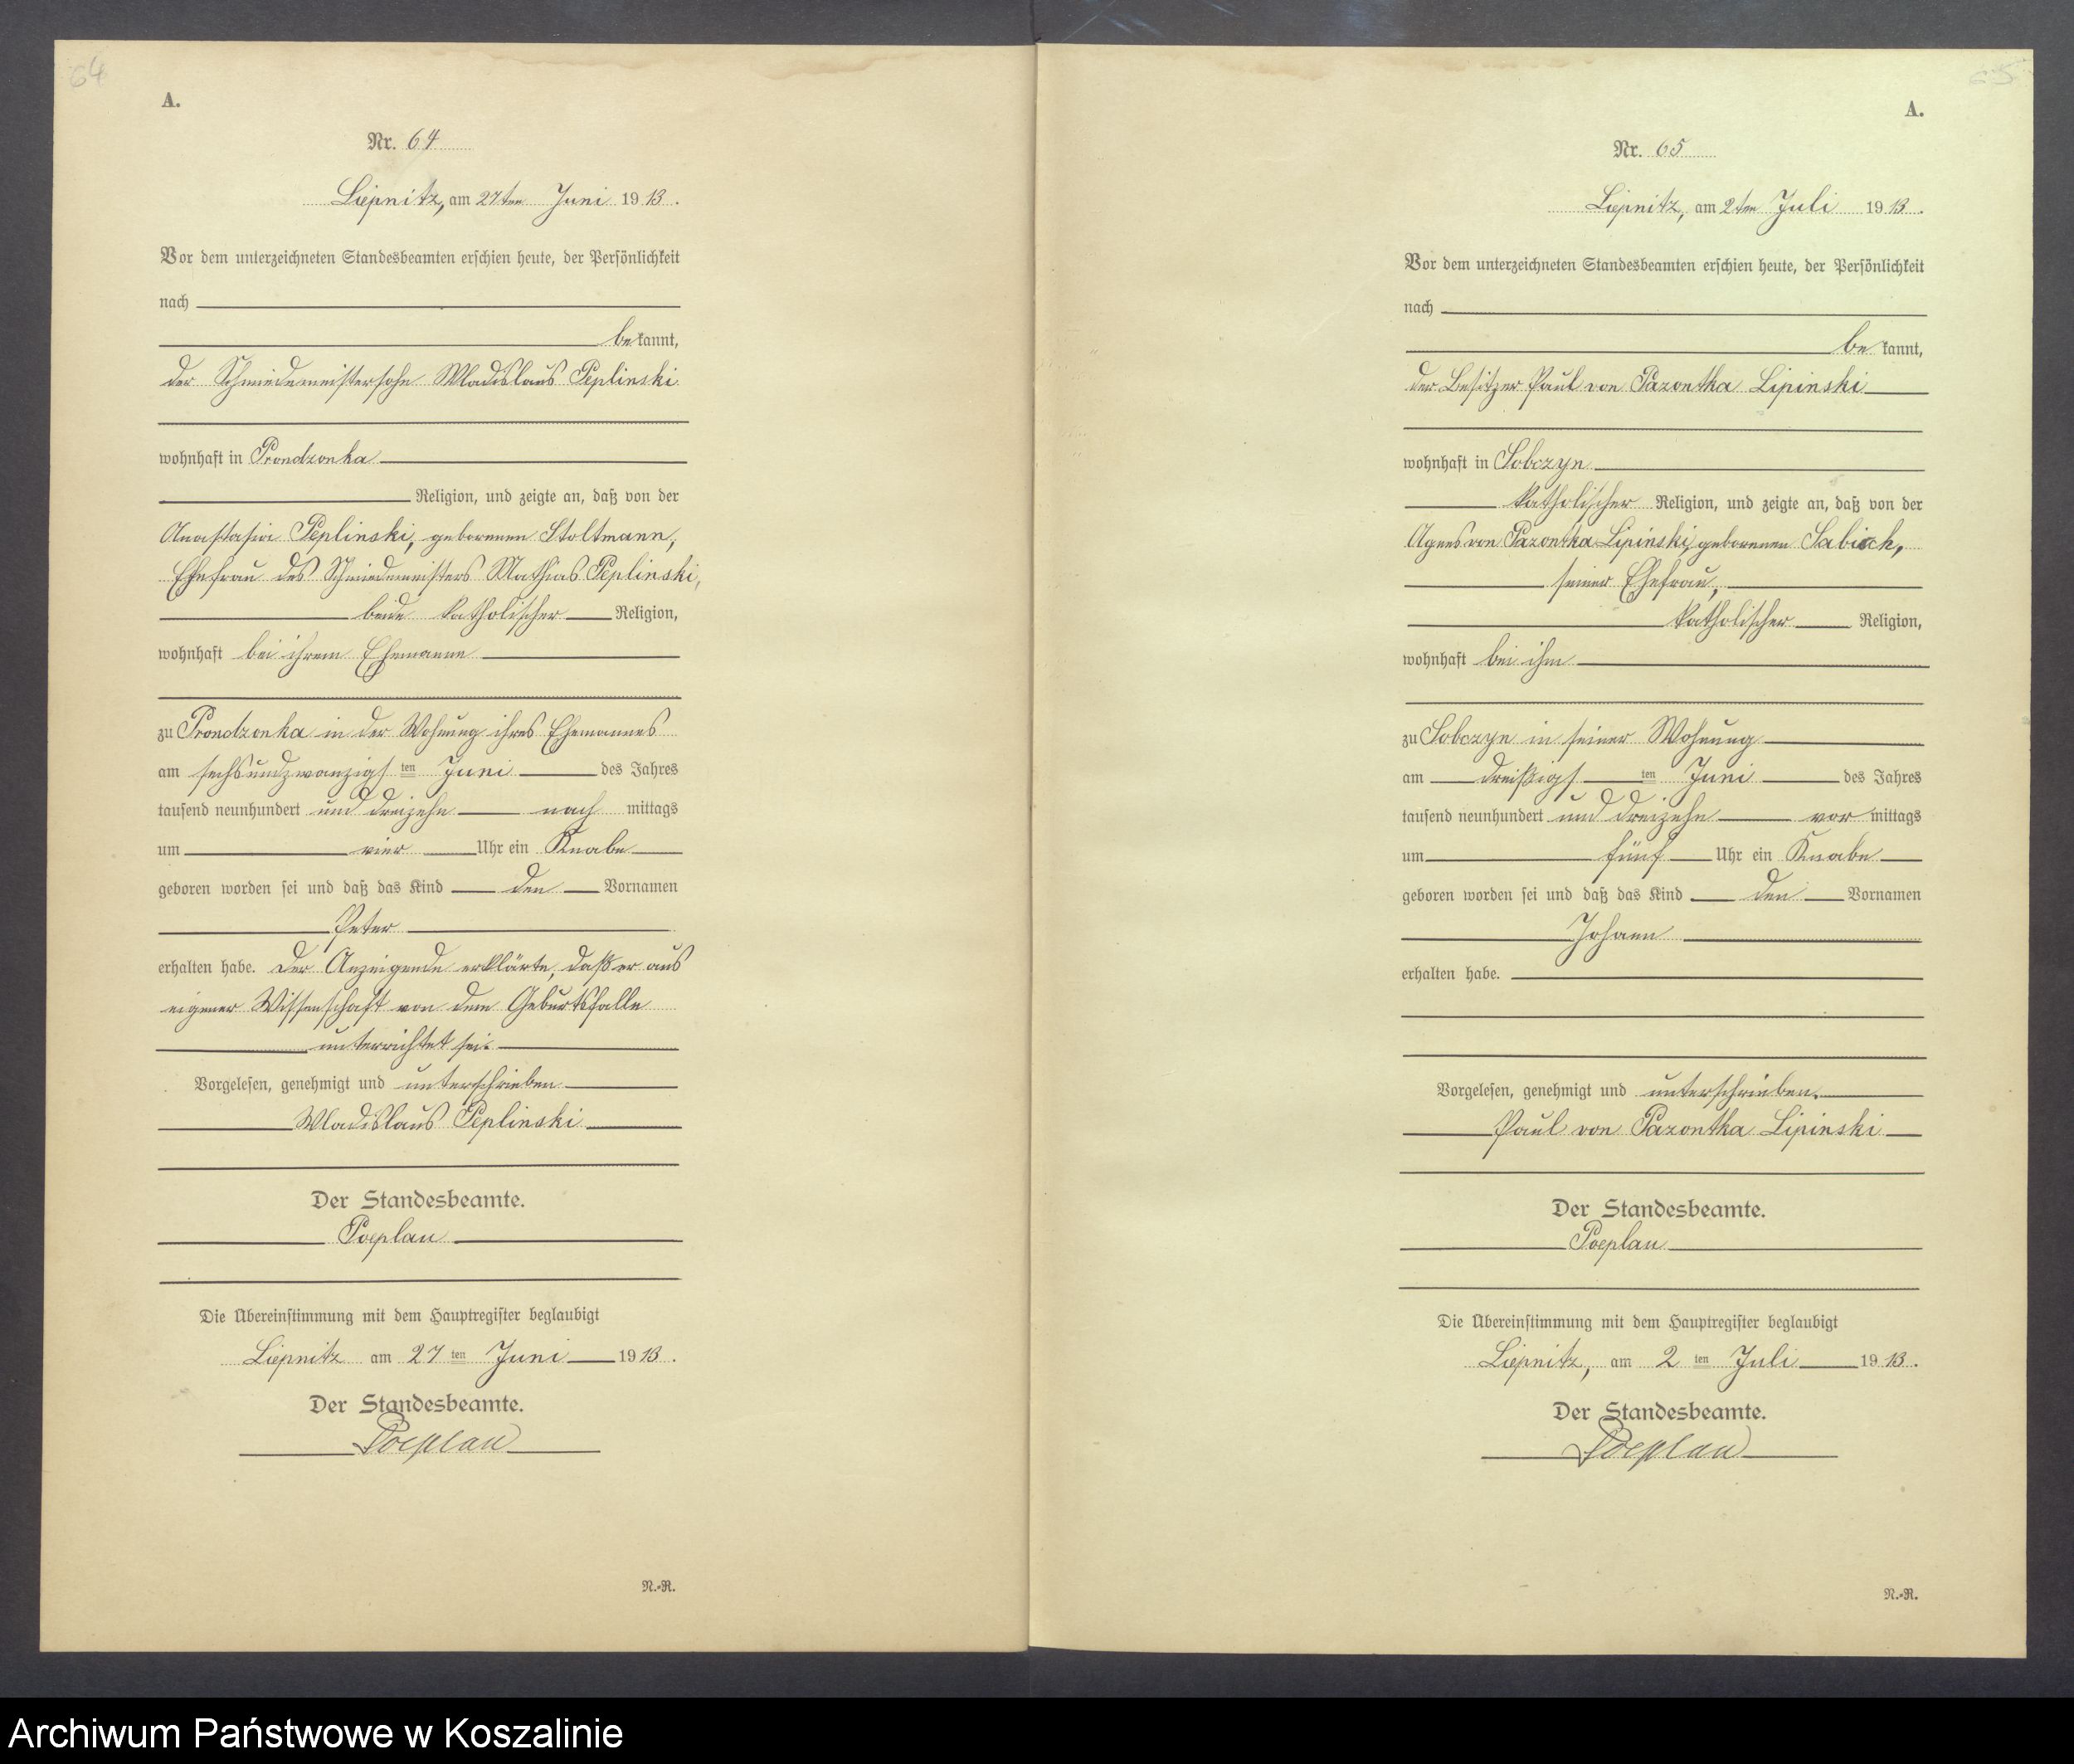 64
A.
Nr. 64
Liepnitz, am 27ten Juni 1913.
Vor dem unterzeichneten Standesbeamten erschien heute, der Persönlichkeit
nach
bekannt,
der Schmiedemeistersohn Wladislaus Peplinski
wohnhaft in Prondzonka
Religion, und zeigte an, daß von der
Anastasia Peplinski, geborenen Stoltmann,
Ehefrau des Schmiedemeisters Mathias Peplinski,
beide katholischer Religion,
wohnhaft bei ihrem Ehemanne
zu Prondzonka in der Wohnung ihres Ehemannes
am sechsundzwanzigsten Juni des Jahres
tausend neunhundert und dreizehn nach mittags
um vier Uhr ein Knabe
geboren worden sei und daß das Kind den Vornamen
Peter
erhalten habe. Der Anzeigende erklärte, daß er aus
eigener Wissenschaft von dem Geburtsfalle
unterrichtet sei.
Vorgelesen, genehmigt und unterschrieben
Wladislaus Peplinski
Der Standesbeamte.
Poeplau
Die Übereinstimmung mit dem Hauptregister beglaubigt
Liepnitz am 27ten Juni 1913.
Der Standesbeamte.
Poeplau
N.-R.
65
A.
Nr. 65
Liepnitz, am 2ten Juli 1913.
Vor dem unterzeichneten Standesbeamten erschien heute, der Persönlichkeit
nach
bekannt,
der Besitzer Paul von Pazontka Lipinski
wohnhaft in Sobczyn
katholischer Religion, und zeigte an, daß von der
Agnes von Pazontka Lipinski, geborenen Sabisch,
seiner Ehefrau,
katholischer Religion,
wohnhaft bei ihm
zu Sobczyn in seiner Wohnung
am dreißigsten Juni des Jahres
tausend neunhundert und dreizehn vor mittags
um fünf Uhr ein Knabe
geboren worden sei und daß das Kind den Vornamen
Johann
erhalten habe.
Vorgelesen, genehmigt und unterschrieben.
Paul von Pazontka Lipinski
Der Standesbeamte.
Poeplau
Die Übereinstimmung mit dem Hauptregister beglaubigt
Liepnitz, am 2ten Juli 1913.
Der Standesbeamte.
Poeplau
N.-R.
Archiwum Państwowe w Koszalinie